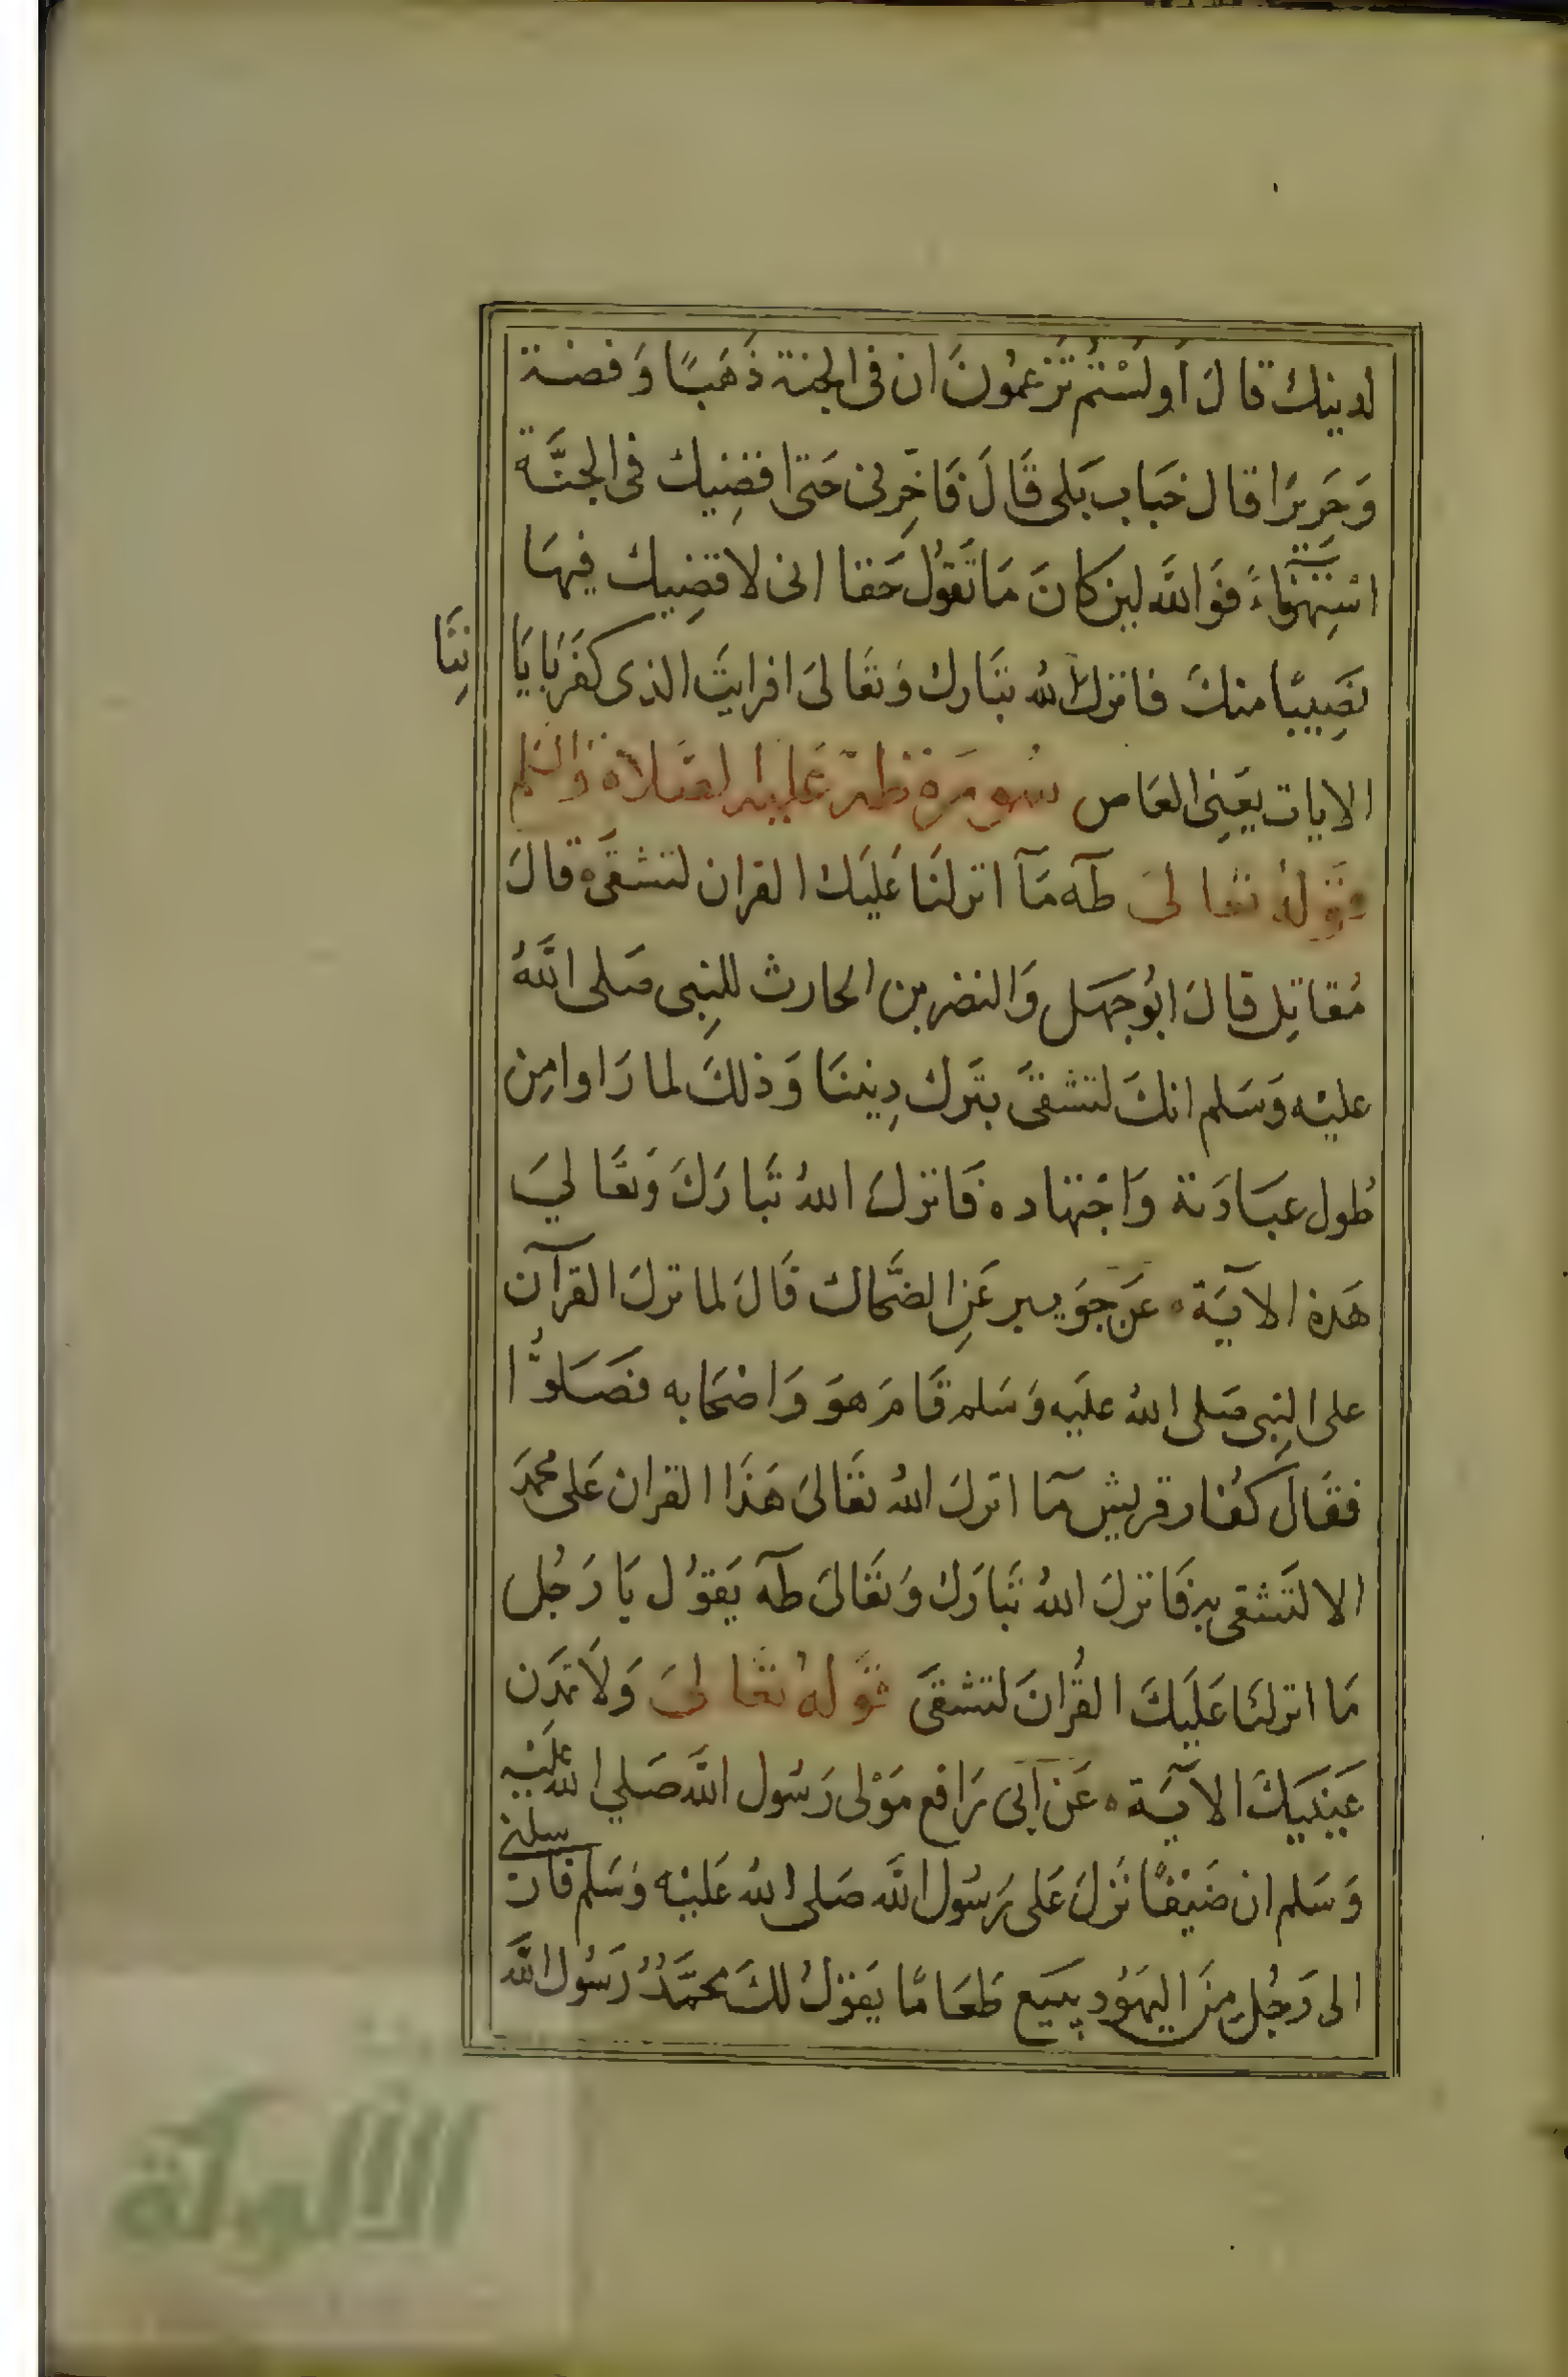 لدينك قال اَولَسْتُم تَزعمُونَ ان في الجنة ذَهَبًا وَفضة
وَحَرِيرًا قال خبَاب بَلى قَالَ فَاخِّرنى حَتى اقضِيك في الجنَّة
اسْتِهزاءً فَوَ اللَّه لين كانَ مَا تَقوُل حَقا انى لاقضِيك فِيهَا
نَصِيبًا منكَ فانزل اللهُ تبَارك وَتعَالىَ افرايتَ الذى كفَرَ بَايَا
تِنَا
الايات يَعنِى العَاص سُورَة طه عَليه الصَّلاة وَالسَّلم
قَوْلهُ تعَالىَ طَه مَآ انزلنَا عَليَك القران لتشقىَ ه قالَ
مُقاتِل قالَ ابوُجهَل وَالنضر بن الحارث للنِبى صَلى اللَّهُ
عليْه وَسَلم انكَ لتشقىَ بتَرك دِيننَا وَذلكَ لما رَاوا مِن
طُول عبَادَتة وَاجْتهاده فَانزلَ اللهُ تَبارَكَ وَتعَاليَ
هَذة الايَة ه عَن جوَيبر عَنِ الضَّحاك قَالَ لما نزلَ القرآن
على النِبى صَلى اللهُ عليَه وَسَلم قَامَ هوَ وَاصْحَابه فصَلوُّا
فقَالَ كفُار قريش مَآ انزلَ اللهُ تعَالىَ هَذَا القران عَلى محمدَ
الا لتَشقى به فَانزلَ اللهُ تَبارَك وَتَعَالىَ طَه يَقوُل يَا رَجُل
مَا انزلنَا عَليَكَ القُرانَ لتشقىَ قَوْلهُ تعَالىَ وَلاَ تمدَن
عَينيَكَ الآيَة ه عَن اَبى رَافع مَوْلى رَسُول اللَّه صَلي الله عليَْه
وَسَلم ان ضَيْفًا نَزلَ عَلى رَسُول اللَّه صَلى اللهُ عَليْه وَسَلم فارسلنى
الى رَجُلٍ مِنَ اليَهوُد يبيَع طَعَامًا يَقوْلُ لكَ محمَّدُ رَسُول اللَّه
الألوكة